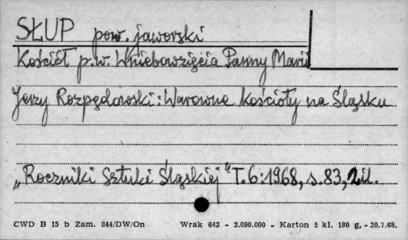 SŁUP pow. jaworski
Kościół p.w. Wniebowzięcia Panny Marii
Jerzy Rozpędowski: Warowne kościoły na Śląsku
„Roczniki Sztuki Śląskiej" T.6:1968, s.83, 2 il.
CWD B 15 b Zam. 844/DW/On Wrak 643 - 2.090.000 - Karton 5 kl. 180 g. - 20.7.68.